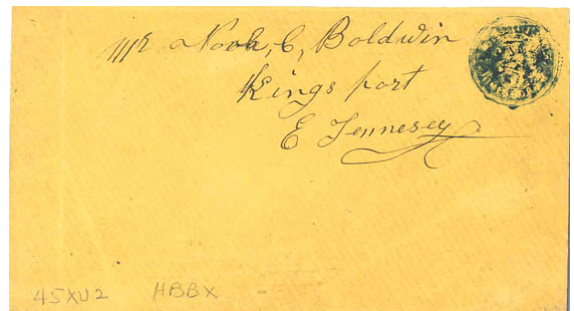 Mr Noah, C, Boldwin
Kings port
E Tennesey
45XU2 HBBX